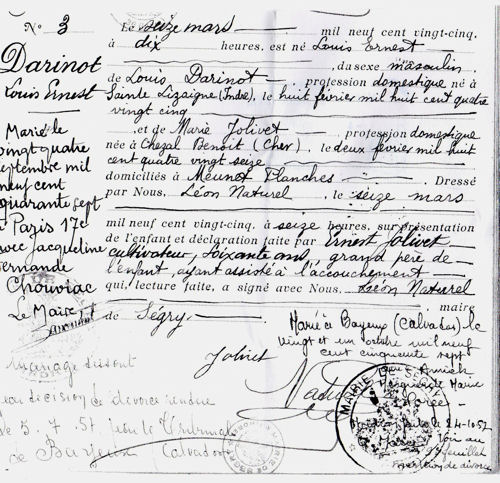 N° 3
Darinot
Louis Ernest
Marié le
vingt quatre
septembre mil
neuf cent
quarante sept
à Paris 17e
avec Jacqueline
Fernande
Chouviac
Le Maire,
Mariage dissout
par décision de divorce rendue
le 5.7.57 par le Tribunal
de Bayeux Calvados
Le seize mars mil neuf cent vingt-cinq,
à dix heures, est né Louis Ernest
, du sexe masculin
de Louis Darinot profession domestique né à
Sainte Lizaigne (Indre), le huit février mil huit cent quatre
vingt cinq
, et de Marie Jolivet profession domestique
née à Chezal Benoit (Cher), le deux février mil huit
cent quatre vingt seize
domiciliés à Meunet Planches. Dressé
par Nous, Léon Naturel, le seize mars
mil neuf cent vingt-cinq, à seize heures, sur présentation
de l'enfant et déclaration faite par Ernest Jolivet
cultivateur, soixante ans, grand père de
l'enfant, ayant assisté à l'accouchement
qui, lecture faite, a signé avec Nous. Léon Naturel
maire
de Ségry.
Jolivet
Marié à Bayeux (Calvados) le
vingt et un octobre mil neuf
cent cinquante sept
MAIRIE DE SEGRY